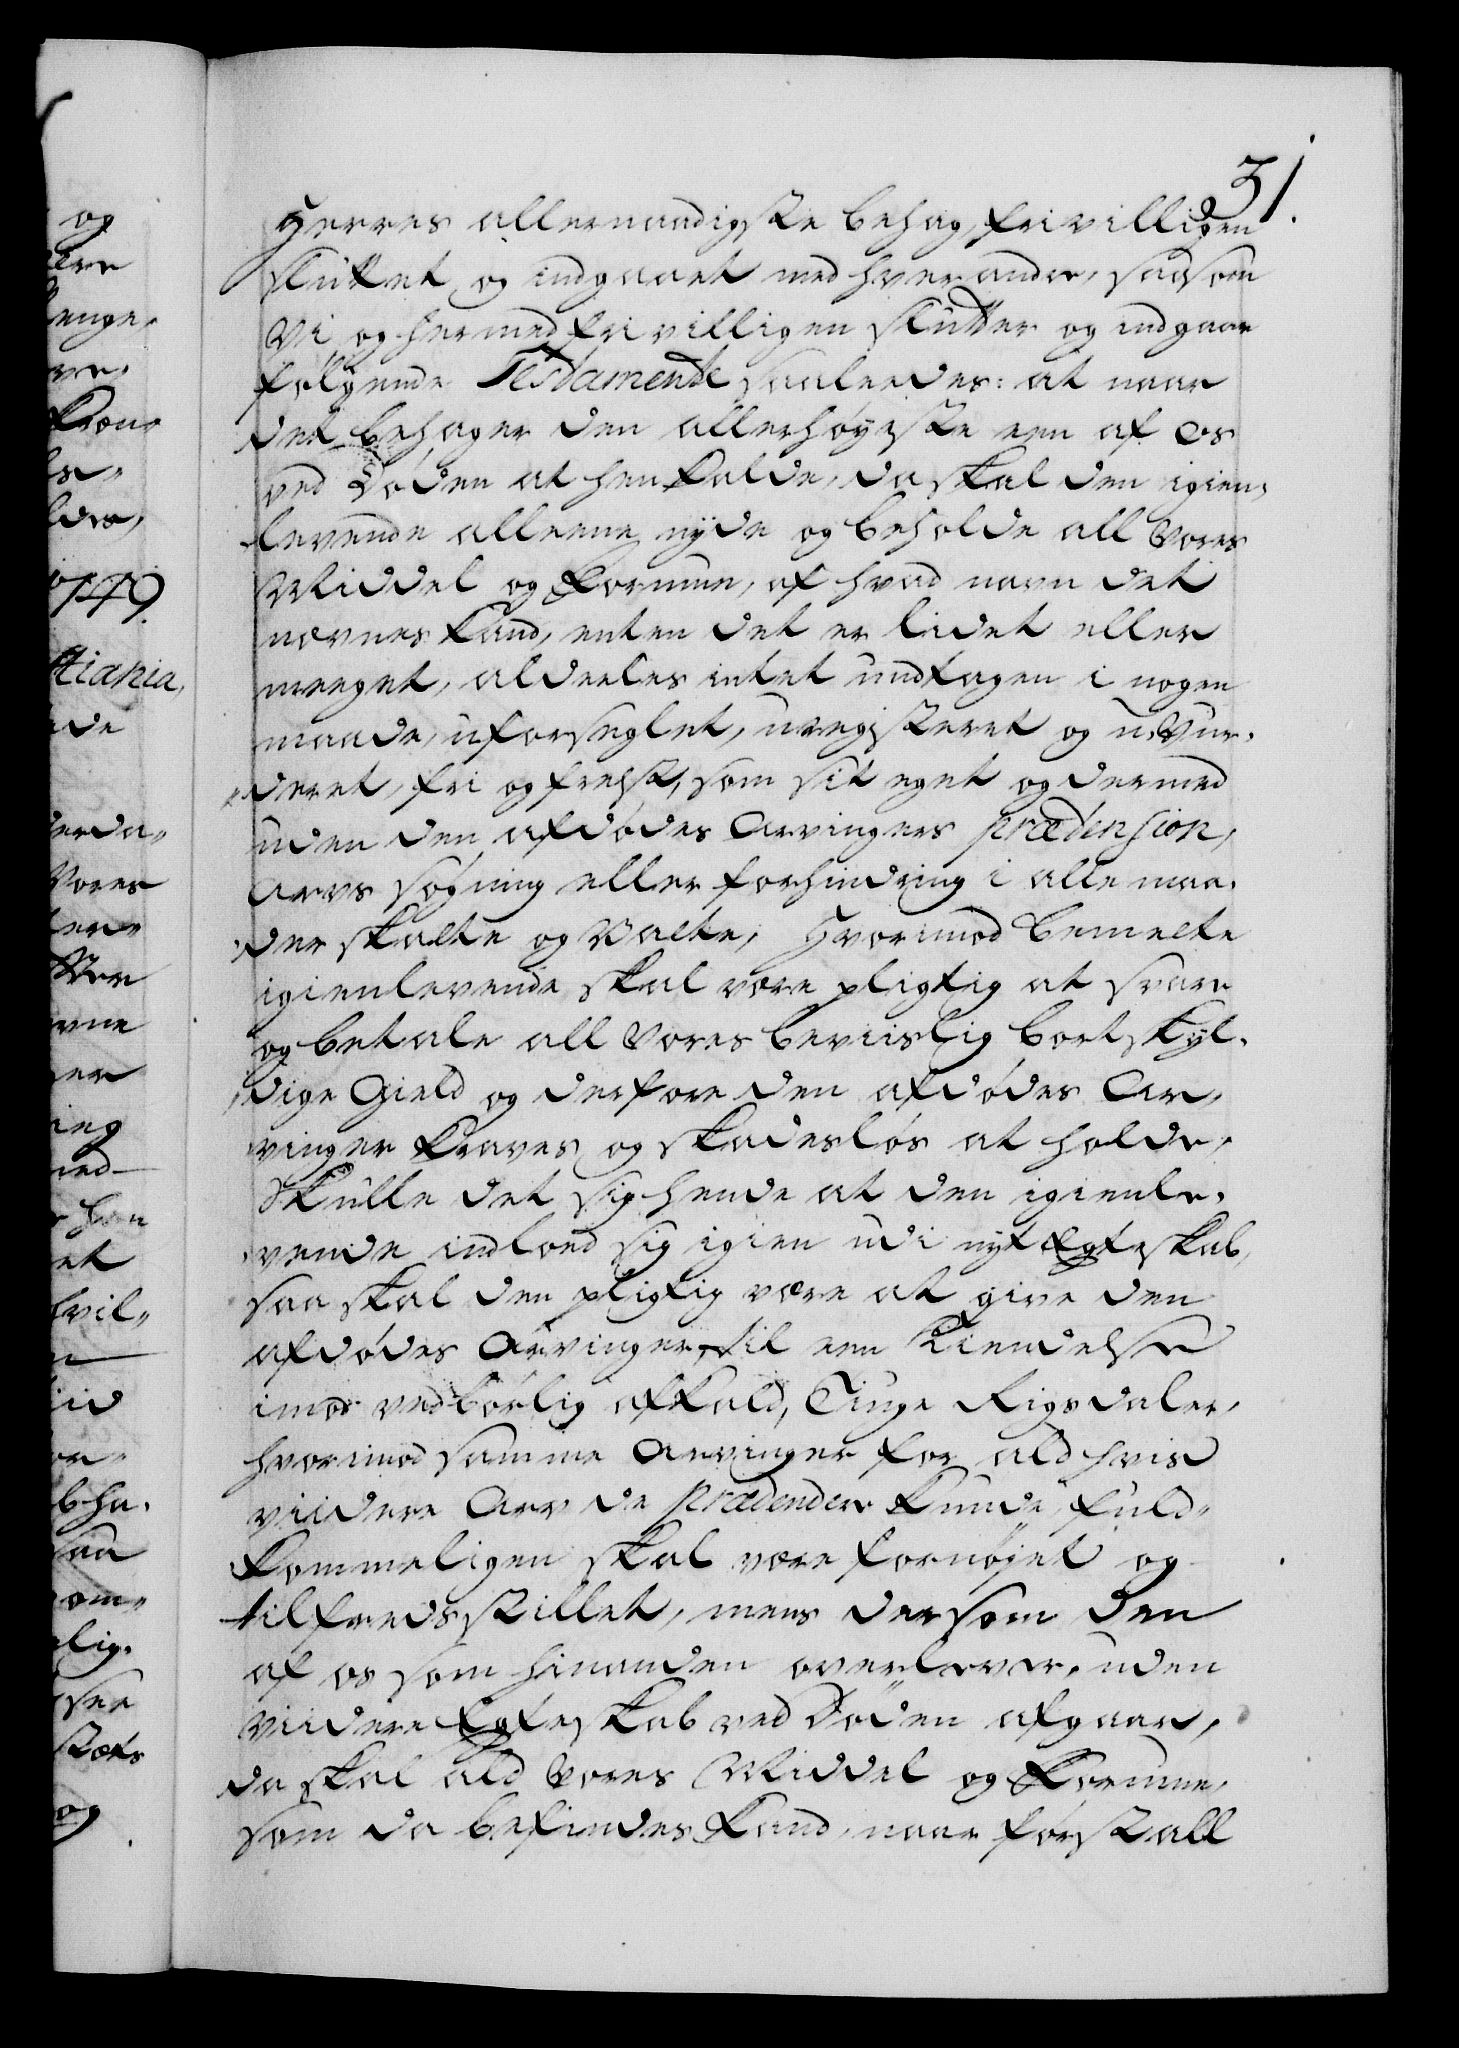 31.
Herres allernaadigste behag, frivilligen
sluttet og indgaaet med hver andre, saasom
Vi og hermed frivilligen slutter og indgaar
følgende Testamente saaledes: at naar
det behager den allerhøyeste een af os
ved Døden at henkalde, da skal den igien-
levende alleene nyde og beholde all Vores
Middel og Formue, af hvad navn det
nævnes kand, enten det er lidet eller
meeget, aldeeles intet undtagen i nogen
maade, uforseglet, uregisteret og u-Vur-
deret, fri og frelst, som sit eget og dermed
uden den afdødes Arvingers prætension,
Arvs søgning eller forhindring i alle maa-
der skalte og Valte, Hvorimod bemelte
igienlevende skal være pligtig at svare
og betale all Vores beviislig bortskyl-
dige Gield og derfore den afdødes Ar-
vinger kraves og skadesløs at holde,
Skulle det sig hende at den igienle-
vende indlod sig igien udi nyt Egteskab,
saa skal den pligtig være at give den
afdødes Arvinger til een Kiendelse
imod vedbørlig afkald, Tiuge Rigsdaler,
hvorimod samme Arvinger for ald hvis
viidere Arv de prætendere kunde, fuld-
kommeligen skal være fornøjet og
tilfredsstillet, mens dersom den
af os som hinanden overlever, uden
viidere Egteskab ved Døden afgaar,
da skal ald Vores Middel og Formue,
som da befindes kand, naar først all
og
1749.
tiania,
Vores
ning
med
han
et
og